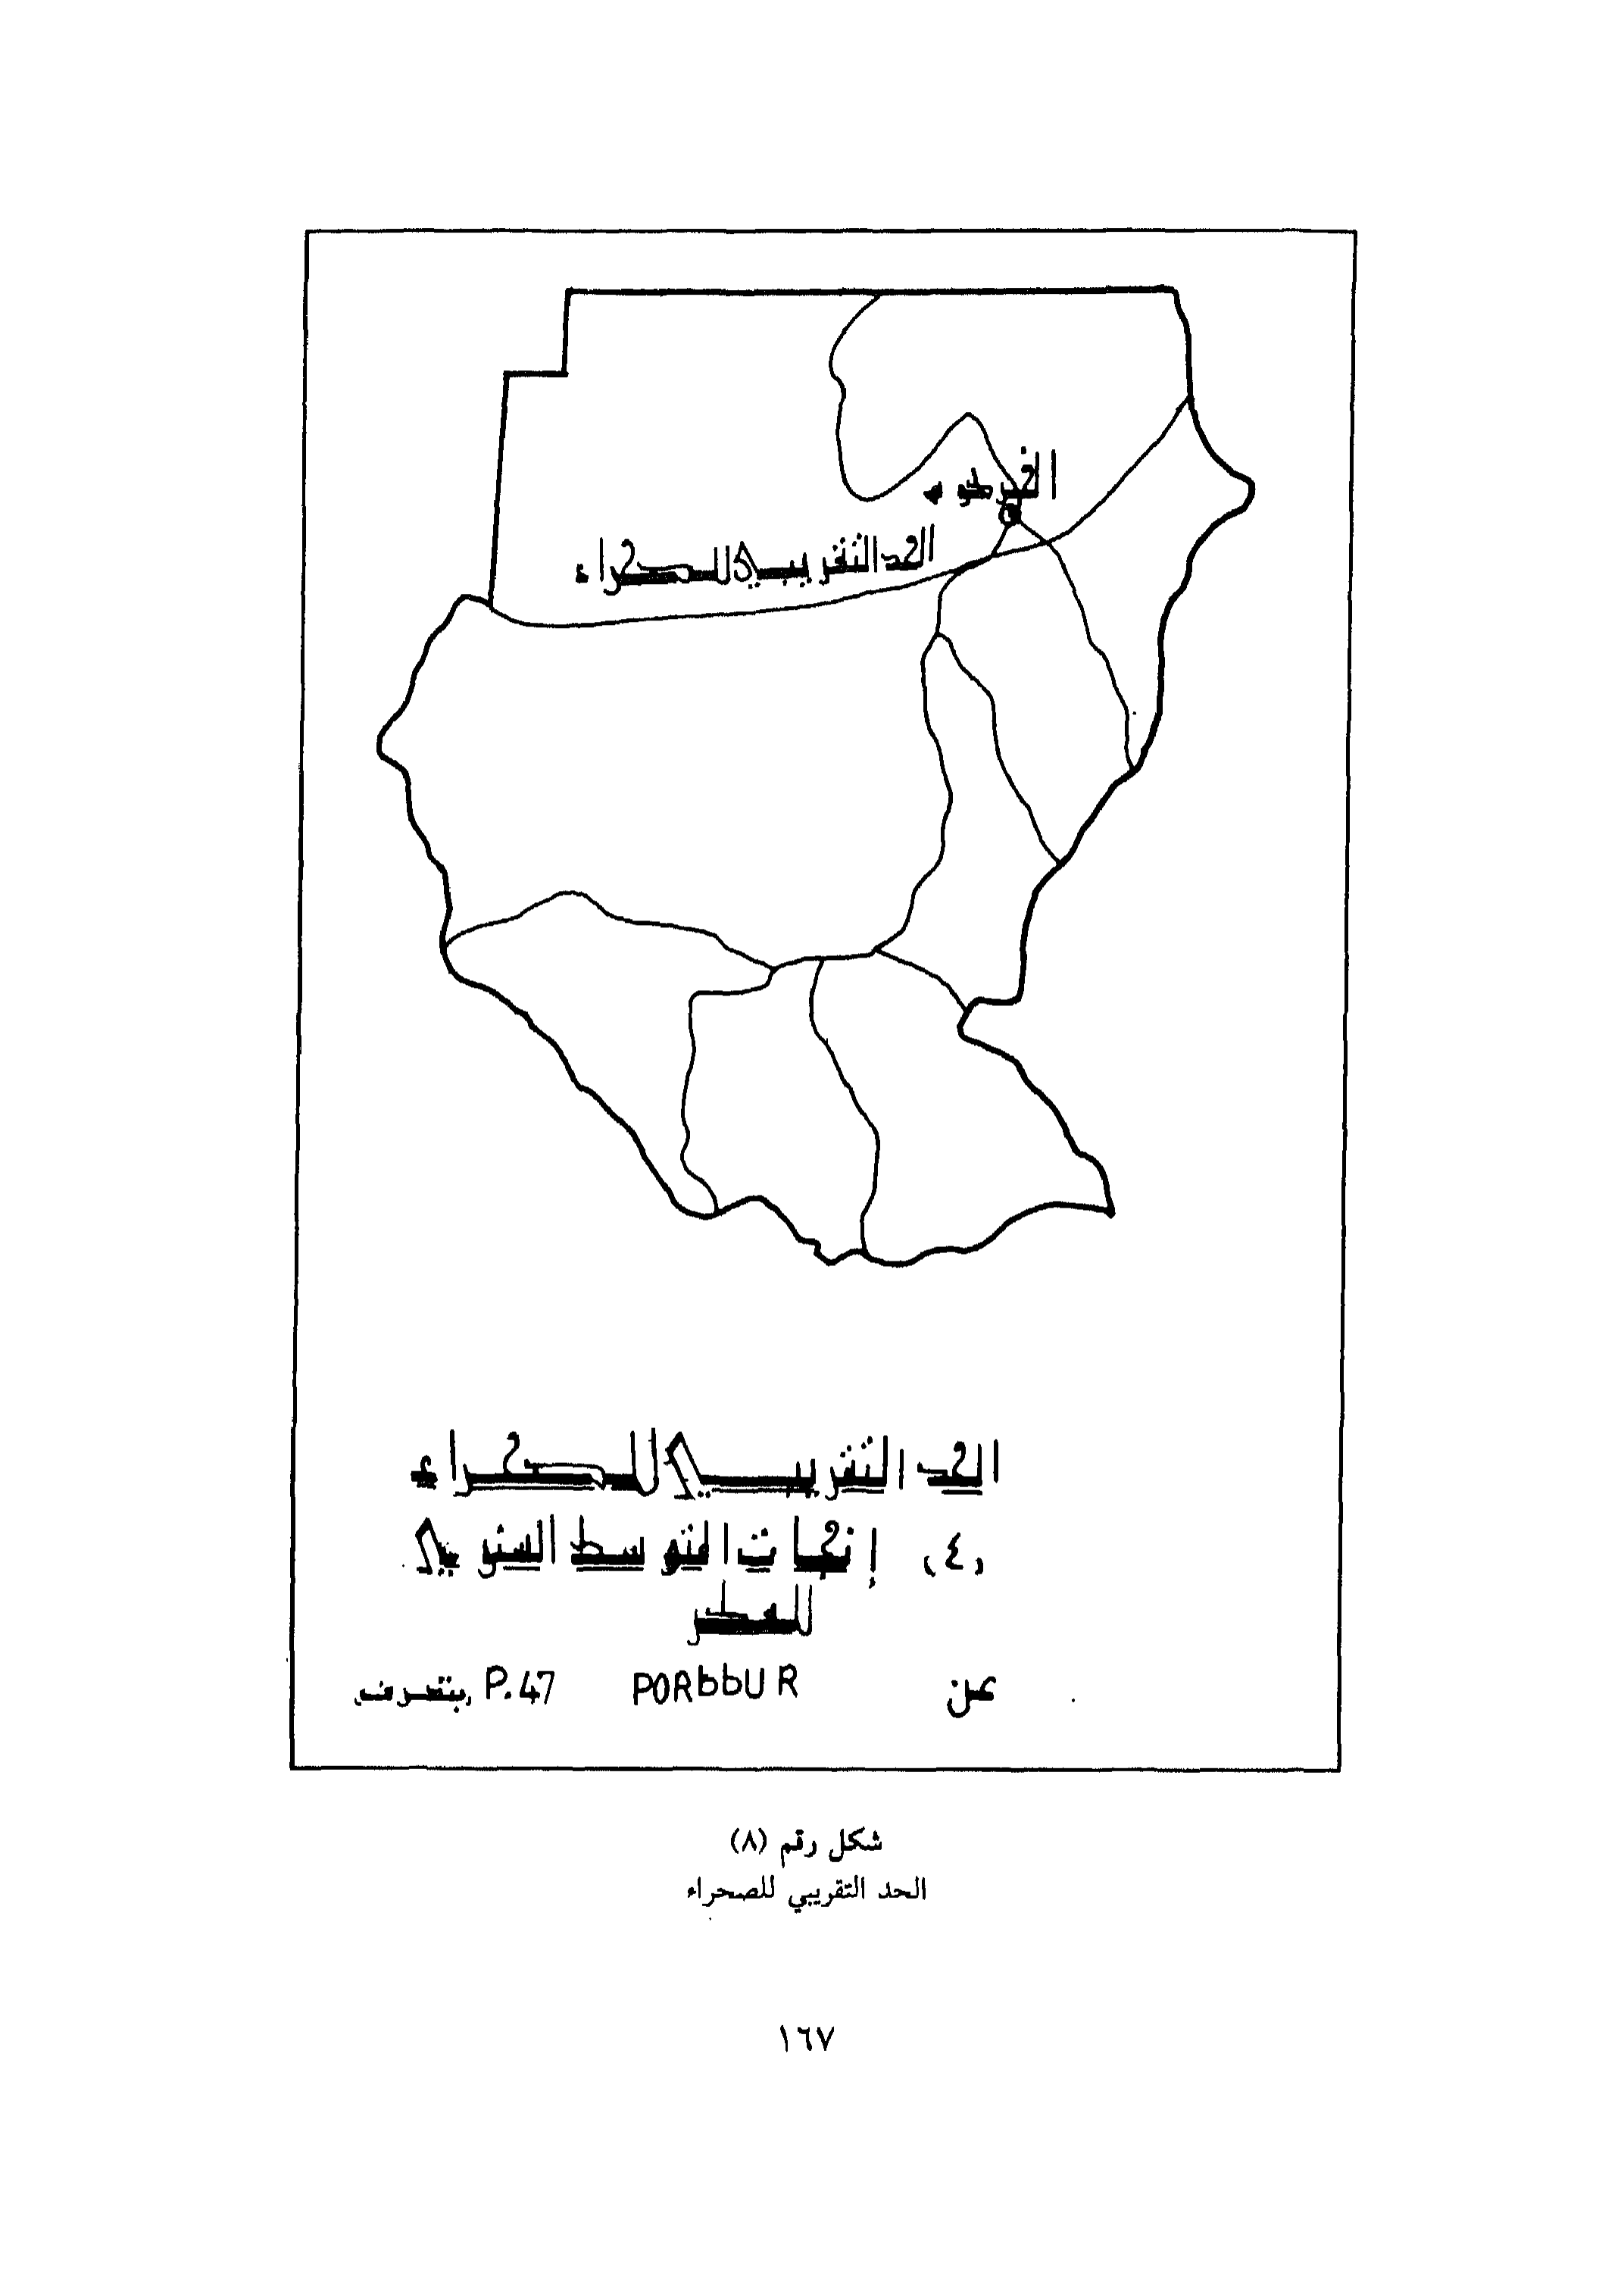 الخرطوم
الحد التقريبي للصحراء
الحد التقريبي للصحراء
(٤) إنحات المتوسط السنوي
للمطر
عن PORbbUR P.47 بتصرف
شكل رقم (٨)
الحد التقريبي للصحراء
١٦٧